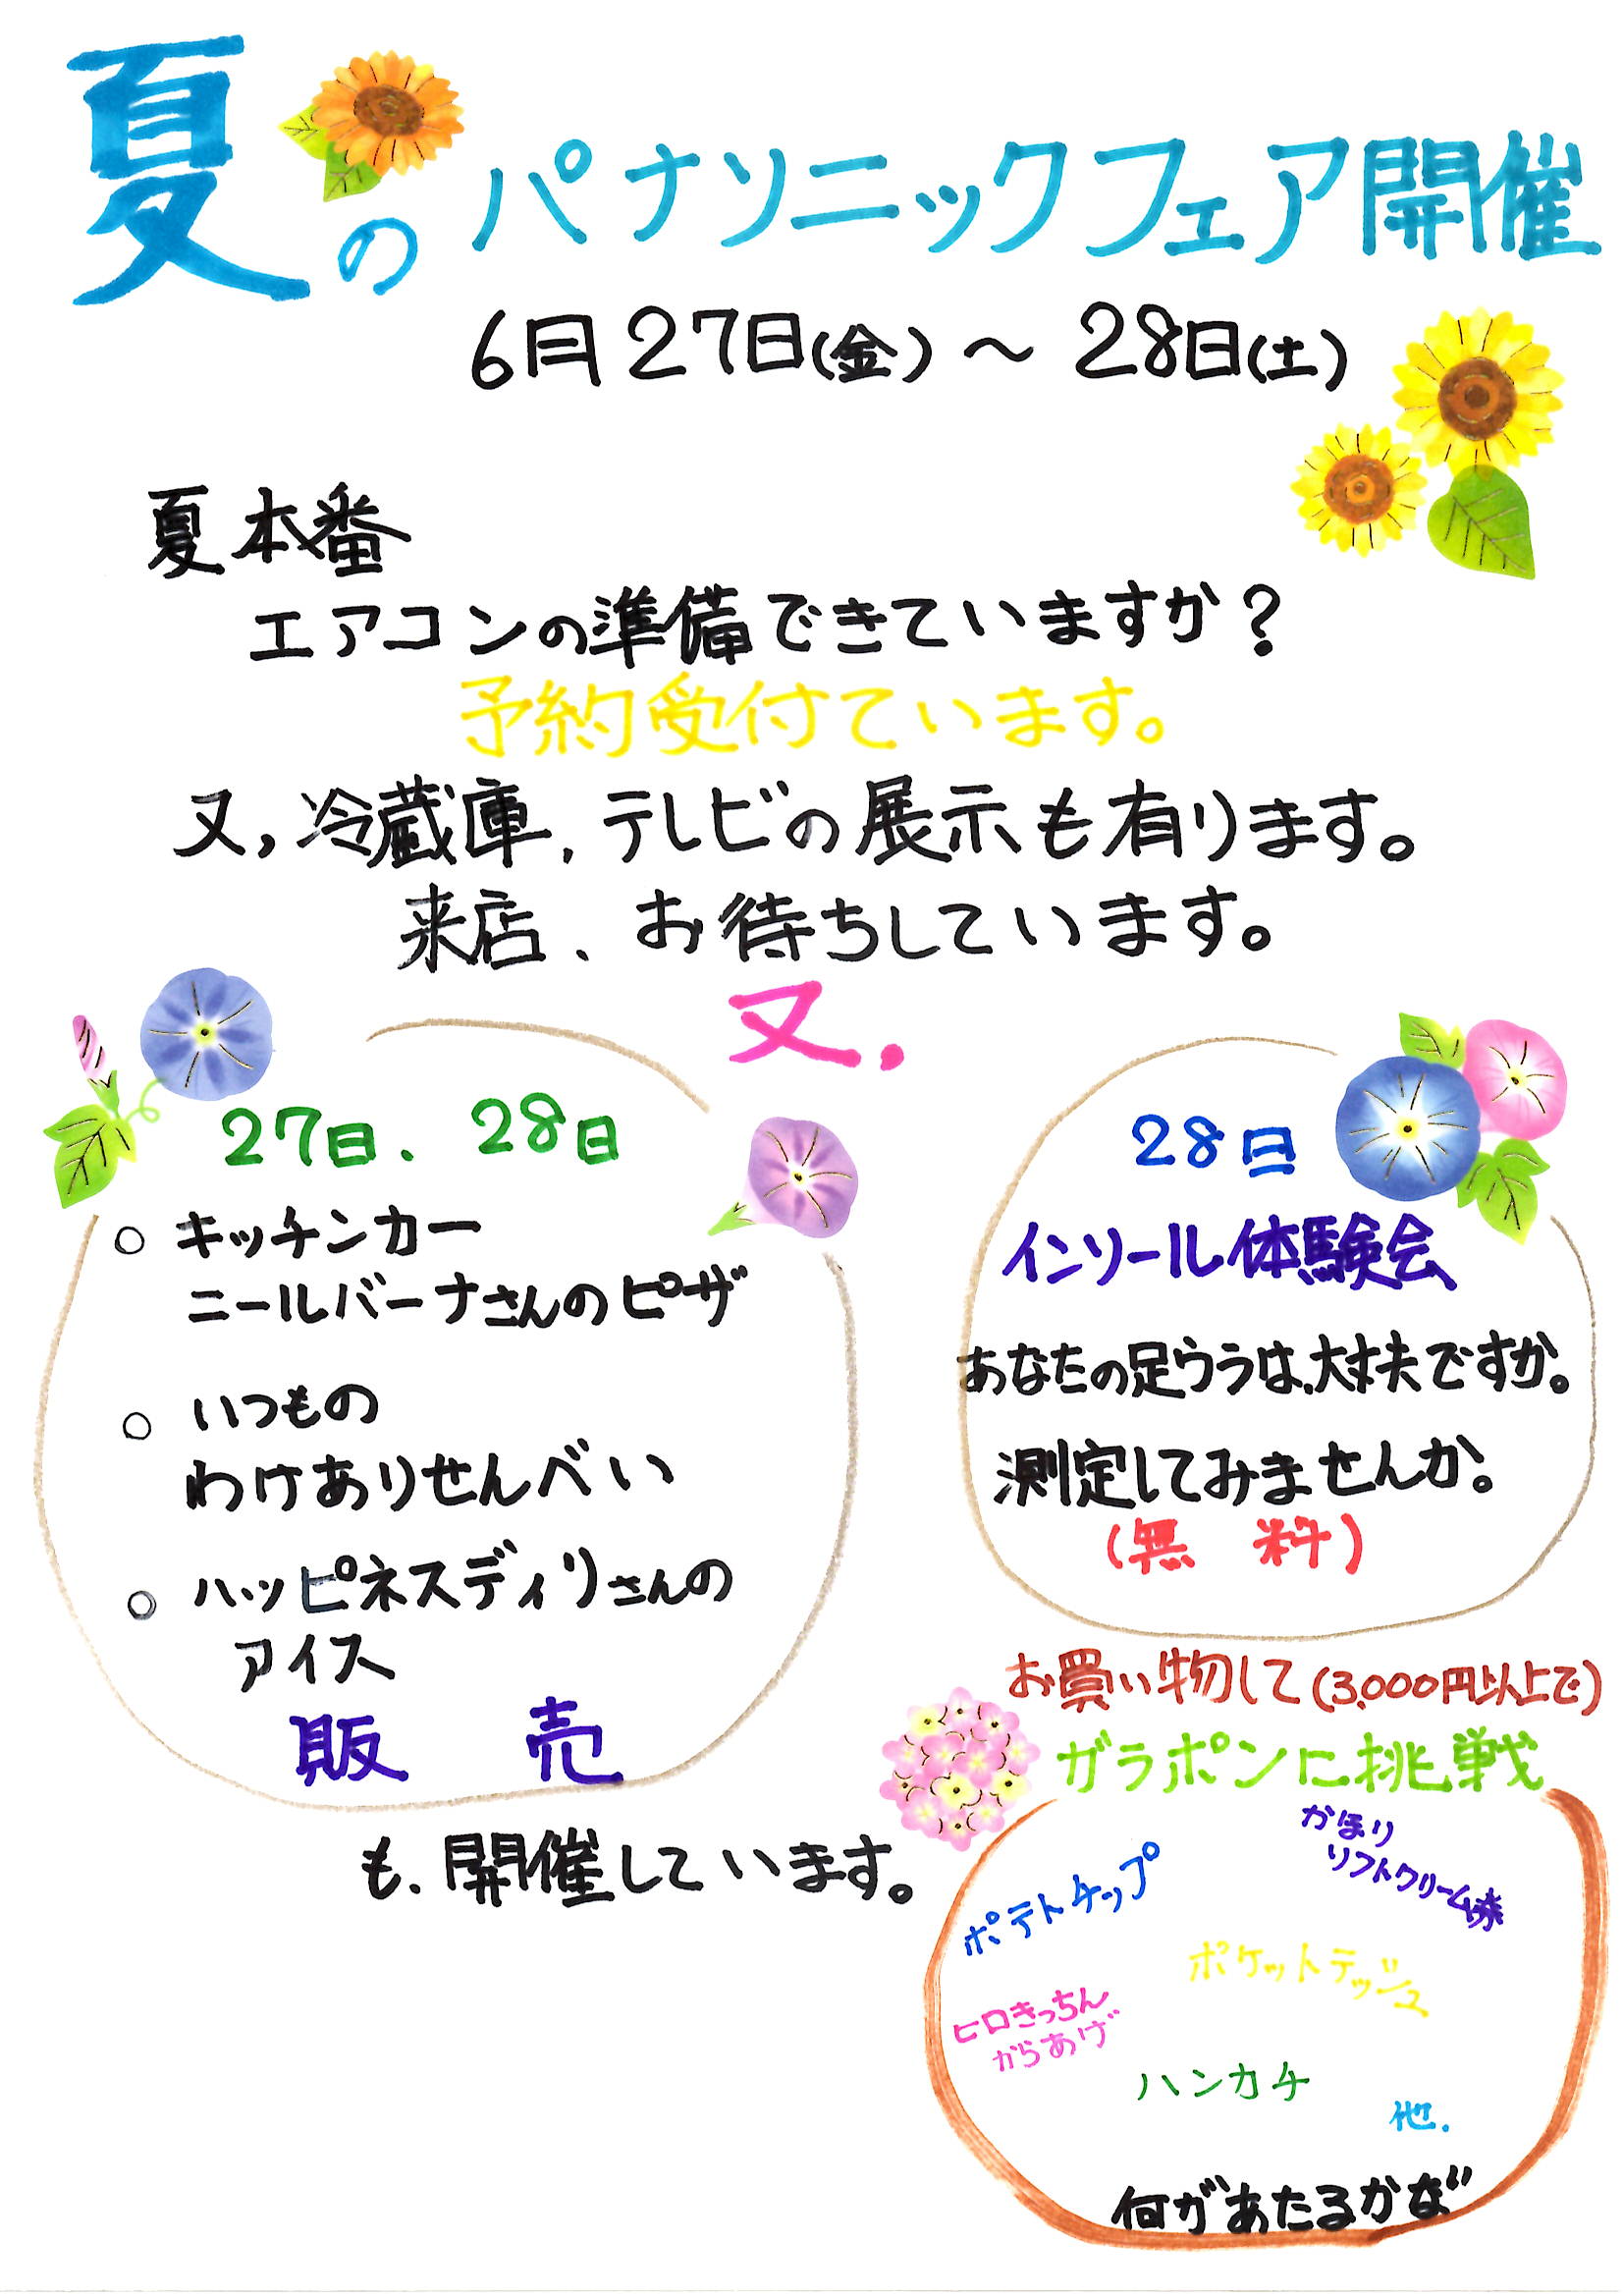 夏のパナソニックフェア開催
6月27日(金)～28日(土)
夏本番
エアコンの準備できていますか?
予約受付ています。
又,冷蔵庫,テレビの展示も有ります。
来店、お待ちしています。
又,
27日、28日
○キッチンカー
ニールバーナさんのピザ
○いつもの
わけありせんべい
○ハッピネスディリさんの
アイス
販売
も、開催しています。
28日
インソール体験会
あなたの足ウラは、大丈夫ですか。
測定してみませんか。
(無料)
お買い物して(3,000円以上で)
ガラポンに挑戦
かほり
ソフトクリーム券
ポテトチップ
ポケットテッシュ
ヒロきっちん
からあげ
ハンカチ
他.
何があたるかな"